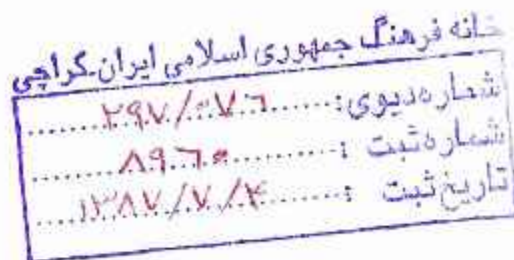 خانه فرهنگ جمهوری اسلامی ایران-کراچی
شماره دیوی: ۲۹۷/۰۷۶
شماره ثبت : ۸۹۶۰
تاریخ ثبت : ۱۳۸۷/۷/۴